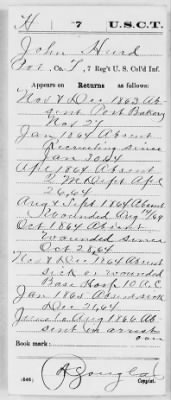 H 7 U.S.C.T.
John Hurd
Co. 7 Reg't U. S. Col'd Inf.
Appears on Returns as follows:
Nov & Dec 1863 Ab
sent Post Bakery
Nov 27
Jan 1864 Absent
Recruiting since
Jan 30 64
Apl 1864 Absent
Q M Dept Apl
26, 64
Aug & Sept 1864 Absent
Wounded Aug 14/64
Oct 1864 Absent
Wounded since
Oct 28, 64
Nov & Dec 1864 Absent
sick or wounded
Base Hosp 10 A.C.
Jan 1865 Absent sick
Dec 21, 64
June to Aug 1866 Ab
sent in arrest
Book mark:
(546) Copyist.